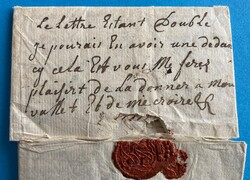 Le Lettre Estant Double
je pourais En avoir une dedan
cy cela Est vous Me feres
plaisir de La donner a Mon
vallet Et de me croire